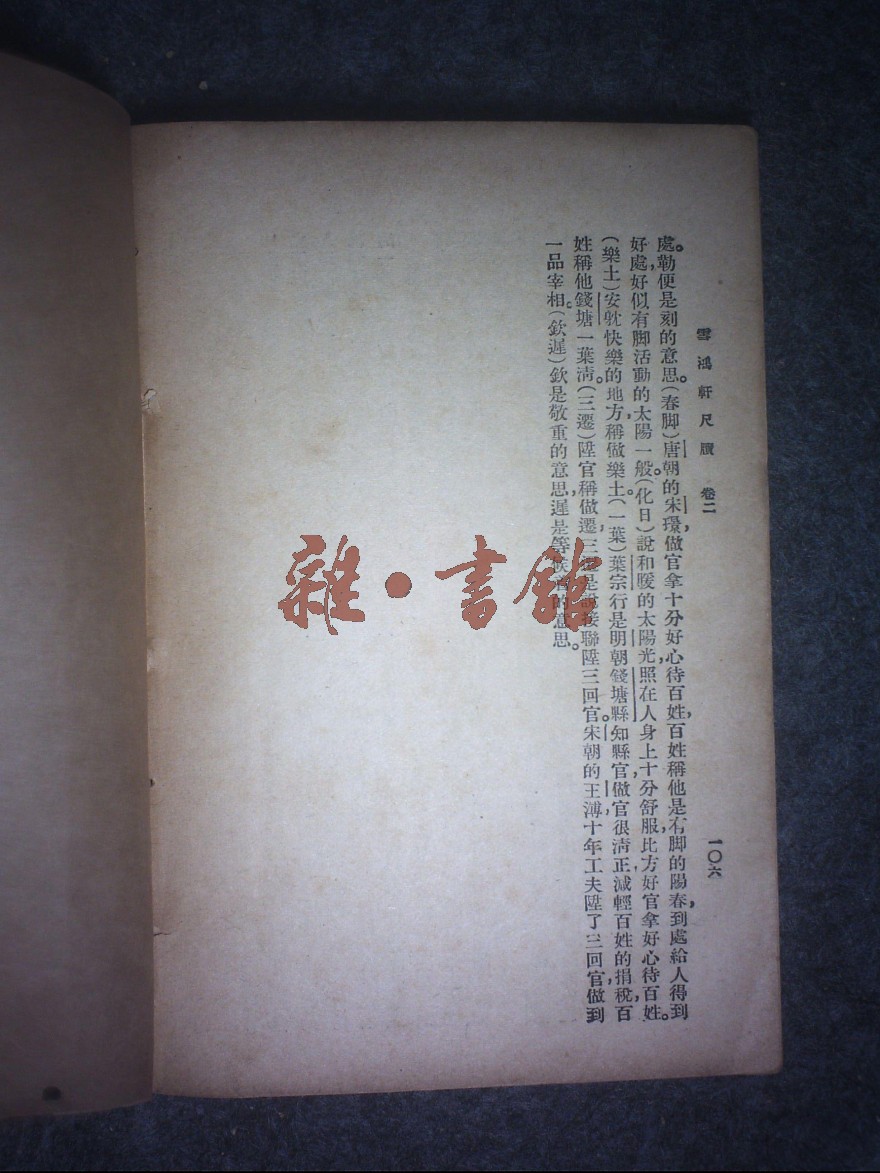 雪鴻軒尺牘　卷二
一〇六
處。勒便是刻的意思。(春脚)唐朝的宋璟,做官拿十分好心待百姓,百姓稱他是有脚的陽春,到處給人得到
好處,好似有脚活動的太陽一般。(化日)說和暖的太陽光,照在人身上十分舒服,比方好官拿好心待百姓。
(樂土)安躭快樂的地方,稱做樂土。(一葉)葉宗行是明朝錢塘縣知縣官,做官很淸正,減輕百姓的捐稅,百
姓稱他錢塘一葉淸。(三遷)陞官稱做遷,三遷是說接聯陞三回官。宋朝的王溥,十年工夫陞了三回官,做到
一品宰相。(欽遲)欽是敬重的意思,遲是等候的意思。
雜·書館